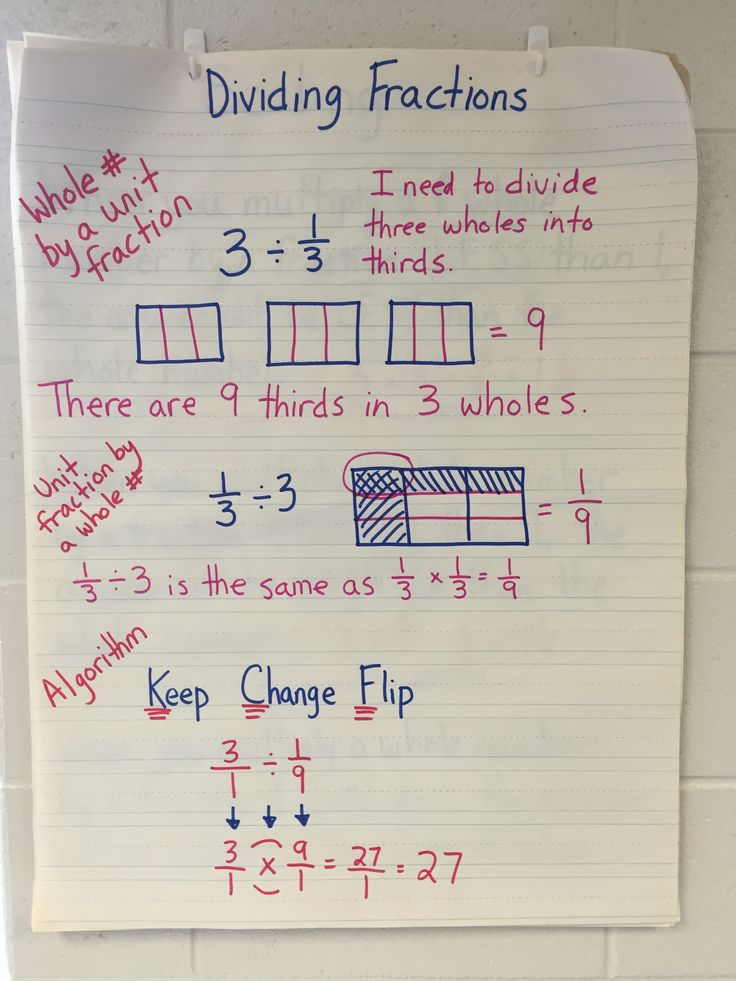 Dividing Fractions
Whole #
by a unit
fraction
3 ÷ 1/3
I need to divide
three wholes into
thirds.
= 9
There are 9 thirds in 3 wholes.
Unit
fraction by
a whole #
1/3 ÷ 3
= 1/9
1/3 ÷ 3 is the same as 1/3 × 1/3 = 1/9
Algorithm
Keep Change Flip
3/1 ÷ 1/9
3/1 × 9/1 = 27/1 = 27